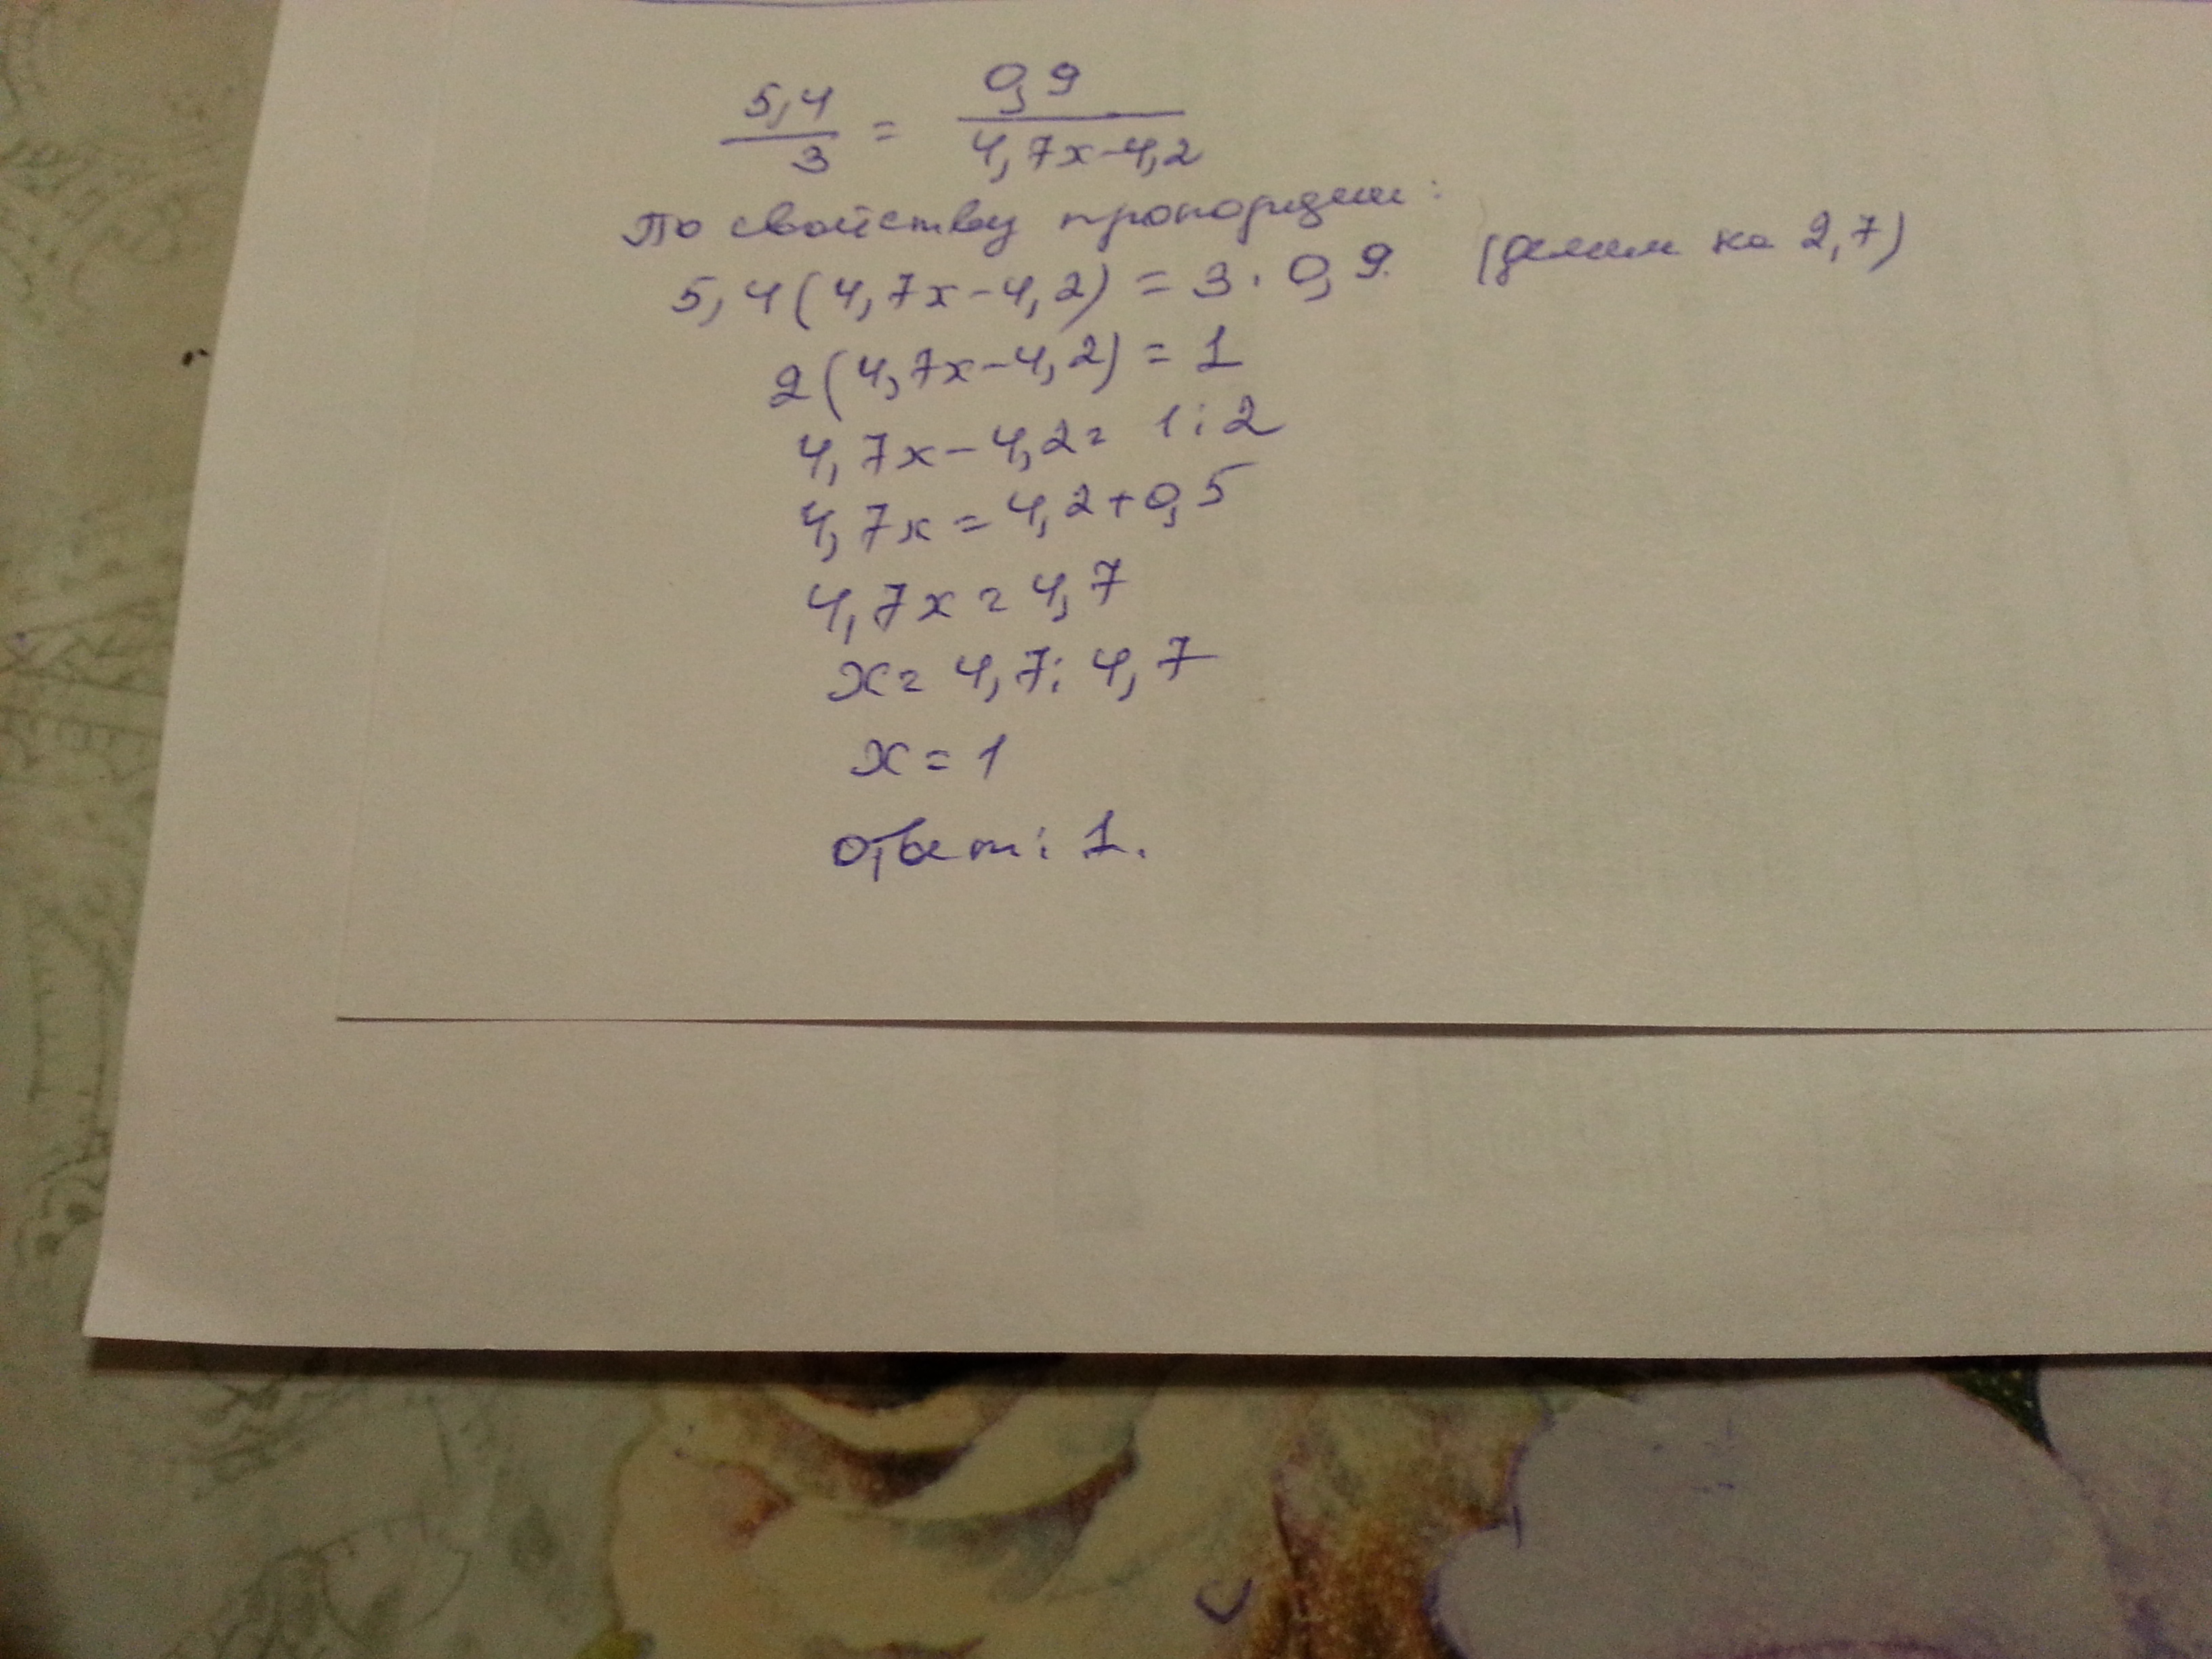 5,4/3 = 0,9/4,7x-4,2
По свойству пропорции:
5,4(4,7x-4,2) = 3·0,9. (делим на 2,7)
2(4,7x-4,2) = 1
4,7x-4,2= 1:2
4,7x = 4,2+0,5
4,7x = 4,7
x= 4,7:4,7
x = 1
Ответ: 1.